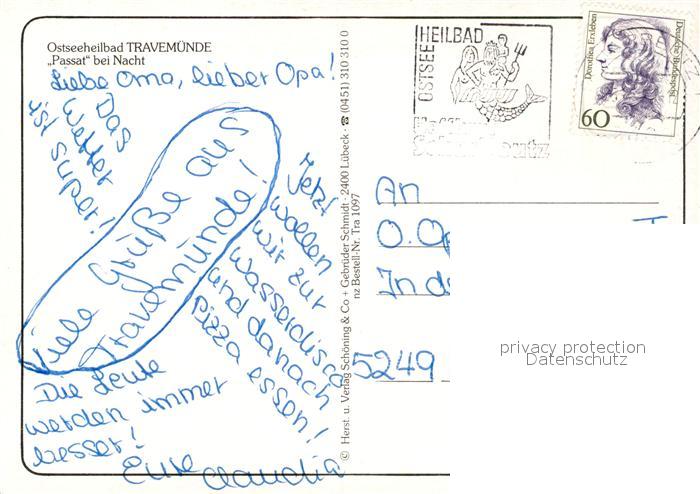 Ostseeheilbad TRAVEMÜNDE
„Passat" bei Nacht
Liebe Oma, lieber Opa!
Das
Wetter
ist super!
Viele Grüße aus
Travemünde!
Jetzt
wollen
wir zur
Wasserdisco
und danach
Pizza essen!
Die Leute
werden immer
besser!
Eure Claudia
© Herst. u. Verlag Schöning & Co + Gebrüder Schmidt · 2400 Lübeck · ☎ (0451) 310 310 0
nz Bestell-Nr. Tra 1097
OSTSEE
HEILBAD
Dorothea Erxleben
Deutsche Bundespost
60
An
O.
In
5249
privacy protection
Datenschutz